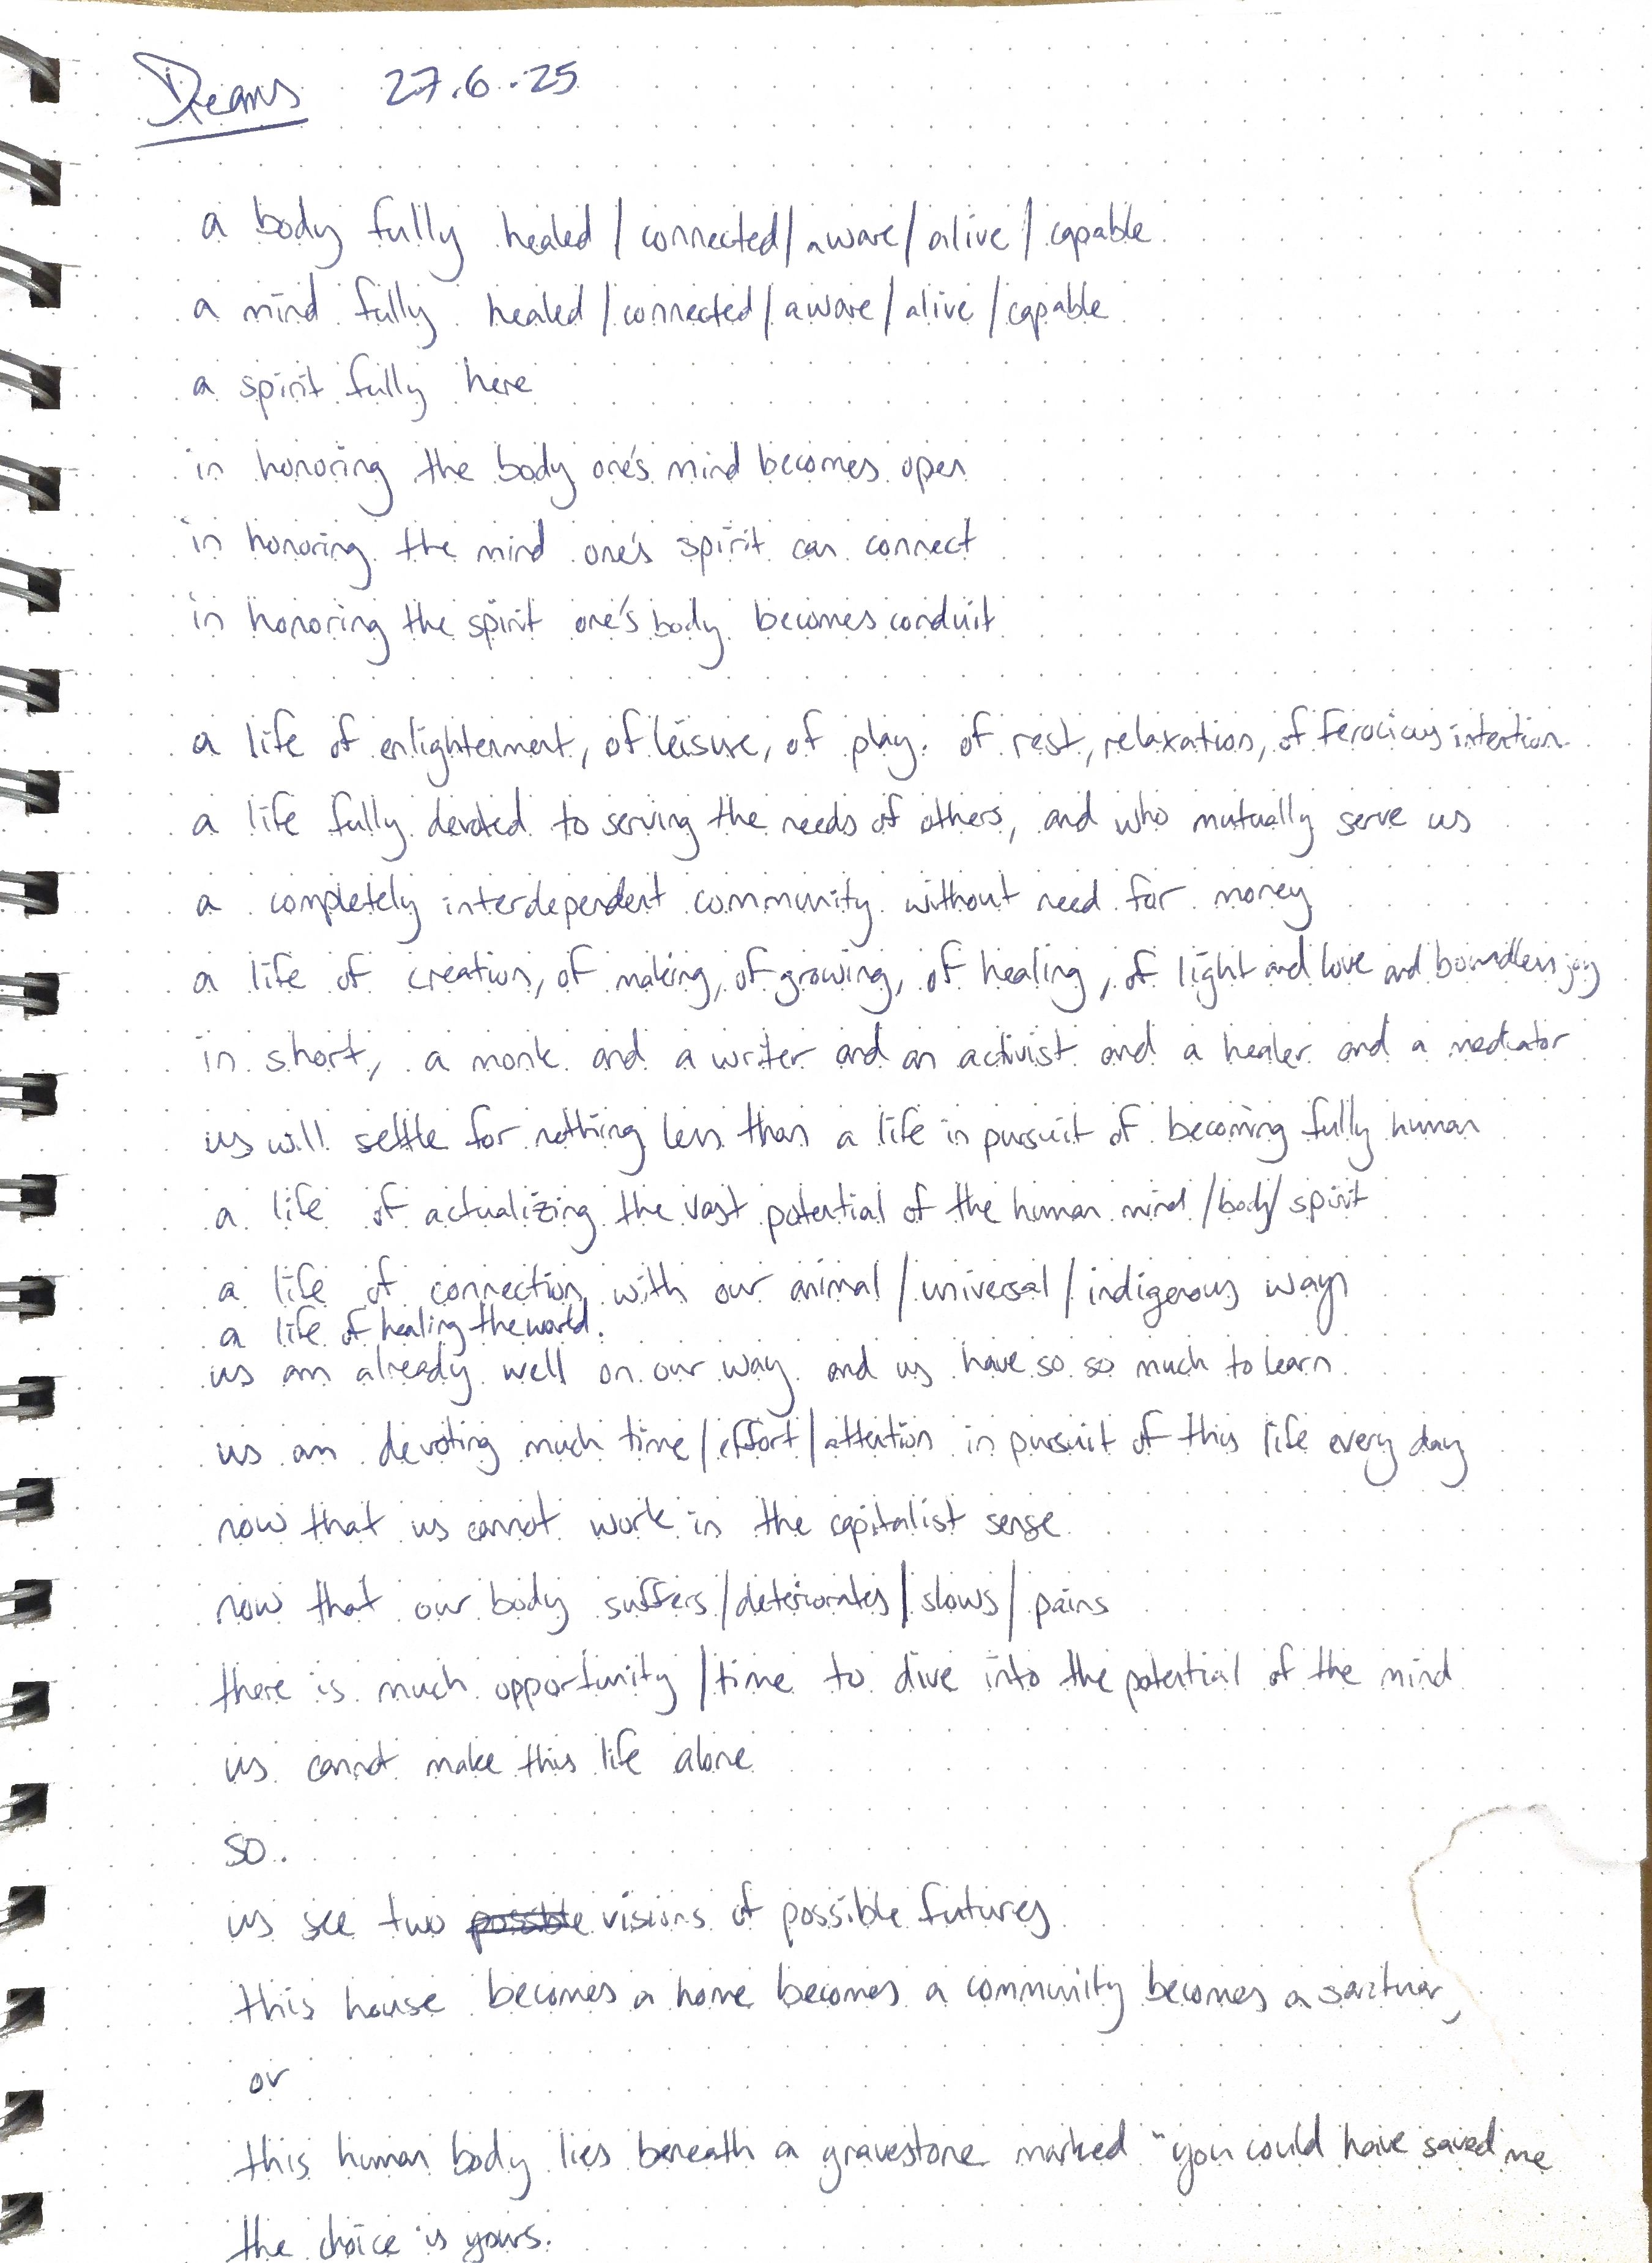 Dreams 27.6.25
a body fully healed / connected / aware / alive / capable
a mind fully healed / connected / aware / alive / capable
a spirit fully here
in honoring the body one's mind becomes open
in honoring the mind one's spirit can connect
in honoring the spirit one's body becomes conduit
a life of enlightenment, of leisure, of play. of rest, relaxation, of ferocious intention
a life fully devoted to serving the needs of others, and who mutually serve us
a completely interdependent community without need for money
a life of creation, of making, of growing, of healing, of light and love and boundless joy
in short, a monk and a writer and an activist and a healer and a mediator
us will settle for nothing less than a life in pursuit of becoming fully human
a life of actualizing the vast potential of the human mind / body / spirit
a life of connection with our animal / universal / indigenous ways
a life of healing the world.
us am already well on our way and us have so so much to learn
us am devoting much time / effort / attention in pursuit of this life every day
now that us cannot work in the capitalist sense
now that our body suffers / deteriorates / slows / pains
there is much opportunity / time to dive into the potential of the mind
us cannot make this life alone
so.
us see two possible visions of possible futures
this house becomes a home becomes a community becomes a sanctuary
or
this human body lies beneath a gravestone marked "you could have saved me
the choice is yours.